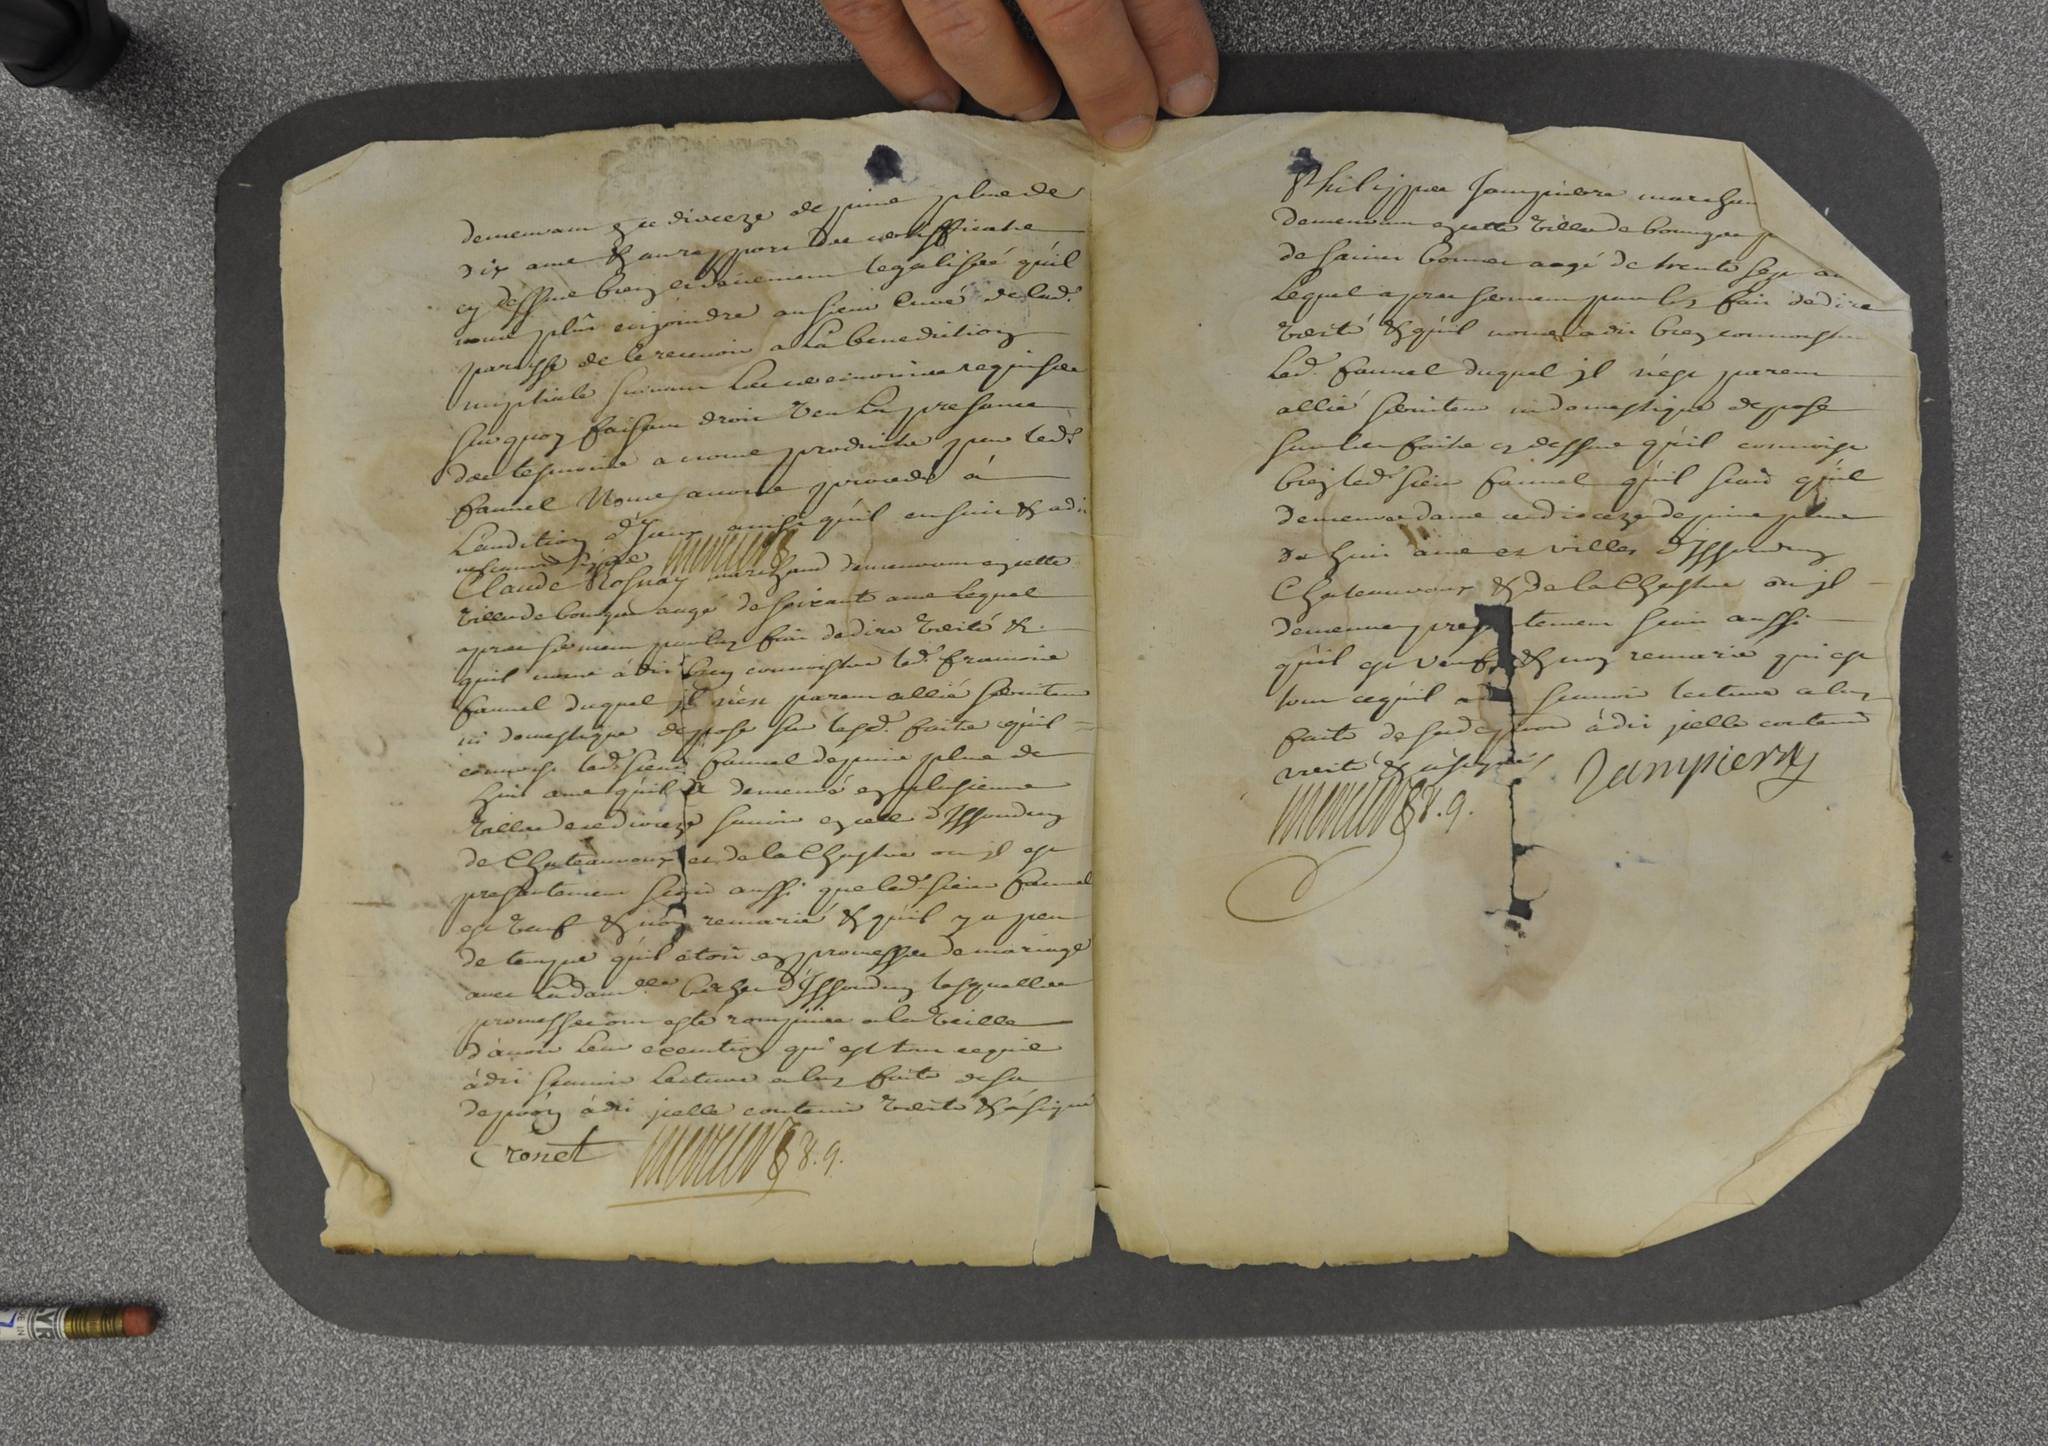 demeurant en ce dioceze depuis plus de
dix ans & au rapport du certifficat
cy dessus bien et deuement legalisée qu'il
nous plut enjoindre au sieur Curé de lad.
paroisse de le recevoir a la benediction
nuptiale suivant les ceremonies requises
sur quoy faisant droit veu la presance
des tesmoins a nous produits par led.
faunel Nous avons procedé à
L'audition d'Iceux ainsi qu'il ensuit & a dit
Claude Rosnay marchand demeurant en cette
ville de bourges aagé de soixante ans lequel
apres serment par luy fait de dire verité &
qu'il nous à dit bien connoistre led. francois
faunel duquel il n'est parent allié serviteur
ni domestique depose sur lesd. faits qu'il
connoist led. sieur faunel depuis plus de
huit ans qu'il a demeuré en plusieurs
villes de ce dioceze sçavoir en celle d'Issoudun
de Chateauroux et de la Chastre ou il est
presentement sçait aussi que led. sieur faunel
est veuf & non remarié & qu'il y a peu
de temps qu'il etoit en promesses de mariage
avec la dam.elle d'Issoudun lesquelles
promesses ont esté rompues a la veille
d'avoir leur execution qui est tout ce qu'il
à dit sçavoir Lecture a luy faite de sa
depo'on à dit jcelle contenir verité & à signé
Cronet
8.9.
Philippes Jampierre marchan
demeurant en cette ville de bourges p
de saint bonnet aagé de trente sept an
Lequel apres serment par luy fait de dire
verité & qu'il nous a dit bien connoistre
Led. faunel duquel jl n'est parent
allié serviteur ni domestique depose
sur les faits cy dessus qu'il connoist
bien led. sieur faunel qu'il sçait qu'il
demeure dans ce dioceze depuis plus
de huit ans es villes d'Issoudun
Chateauroux & de la Chastre ou jl
demeure presentement sçait aussi
qu'il est veuf & non remarié qui est
tout ce qu'il a sçavoir lecture a luy
faite de sa depo'on à dit jcelle contenir
verité & a signé Jampierre
8.9.